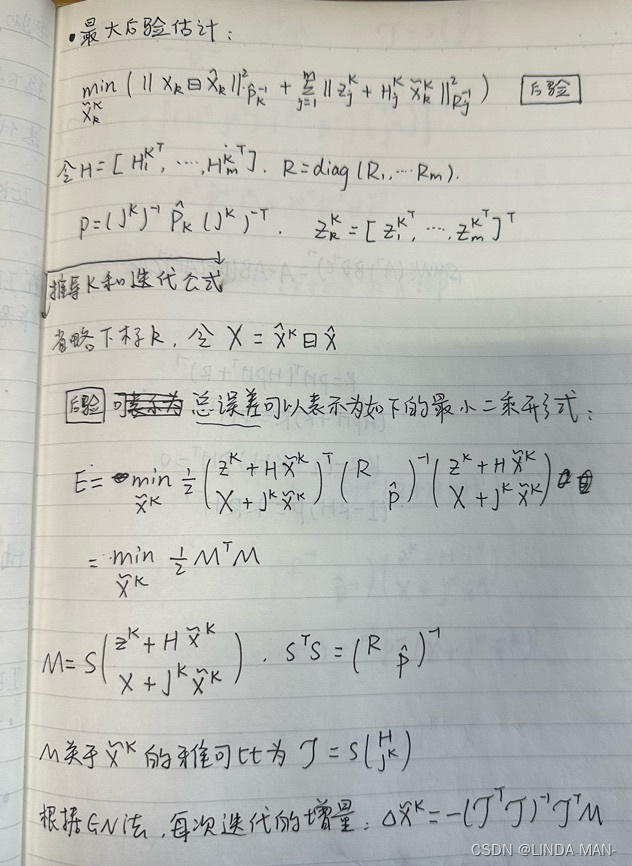 ·最大后验估计:
min_{x̃_k^κ} ( ‖ x_k ⊟ x̂_k ‖²_{P̂_k^{-1}} + Σ_{j=1}^{m} ‖ z_j^κ + H_j^κ x̃_k^κ ‖²_{R_j^{-1}} ) 后验
令 H = [ H_1^{κT}, ···, H_m^{κT} ]. R = diag (R_1, ··· R_m).
P = (J^κ)^{-1} P̂_k (J^κ)^{-T}. z_k^κ = [ z_1^{κT}, ···, z_m^{κT} ]^T
推导K和迭代公式
省略下标k, 令 X = x̂^κ ⊟ x̂
后验 总误差可以表示为如下的最小二乘形式:
E = min_{x̃^κ} 1/2 ( z^κ + H x̃^κ ; X + J^κ x̃^κ )^T ( R  P̂ )^{-1} ( z^κ + H x̃^κ ; X + J^κ x̃^κ )
= min_{x̃^κ} 1/2 M^T M
M = S ( z^κ + H x̃^κ ; X + J^κ x̃^κ ). S^T S = ( R  P̂ )^{-1}
M关于 x̃^κ 的雅可比为 J = S ( H ; J^κ )
根据GN法, 每次迭代的增量: Δx̃^κ = -(J^T J)^{-1} J^T M
CSDN @LINDA MAN-